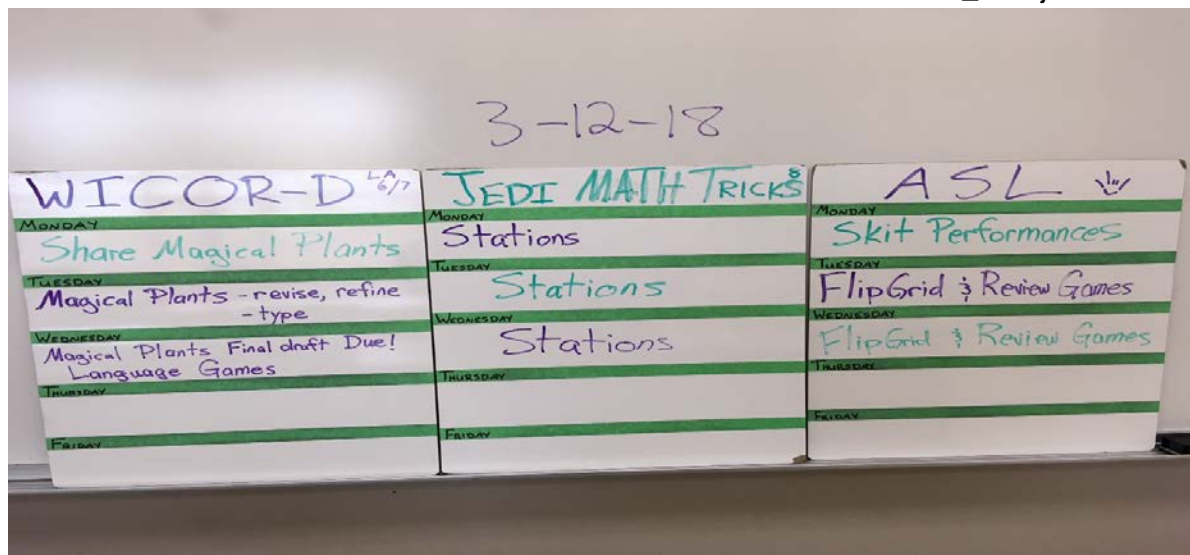 3-12-18
WICOR-D LA 6/7
MONDAY
Share Magical Plants
TUESDAY
Magical Plants - revise, refine
- type
WEDNESDAY
Magical Plants Final draft Due!
Language Games
THURSDAY
FRIDAY
JEDI MATH TRICKS 8
MONDAY
Stations
TUESDAY
Stations
WEDNESDAY
Stations
THURSDAY
FRIDAY
ASL
MONDAY
Skit Performances
TUESDAY
FlipGrid & Review Games
WEDNESDAY
FlipGrid & Review Games
THURSDAY
FRIDAY